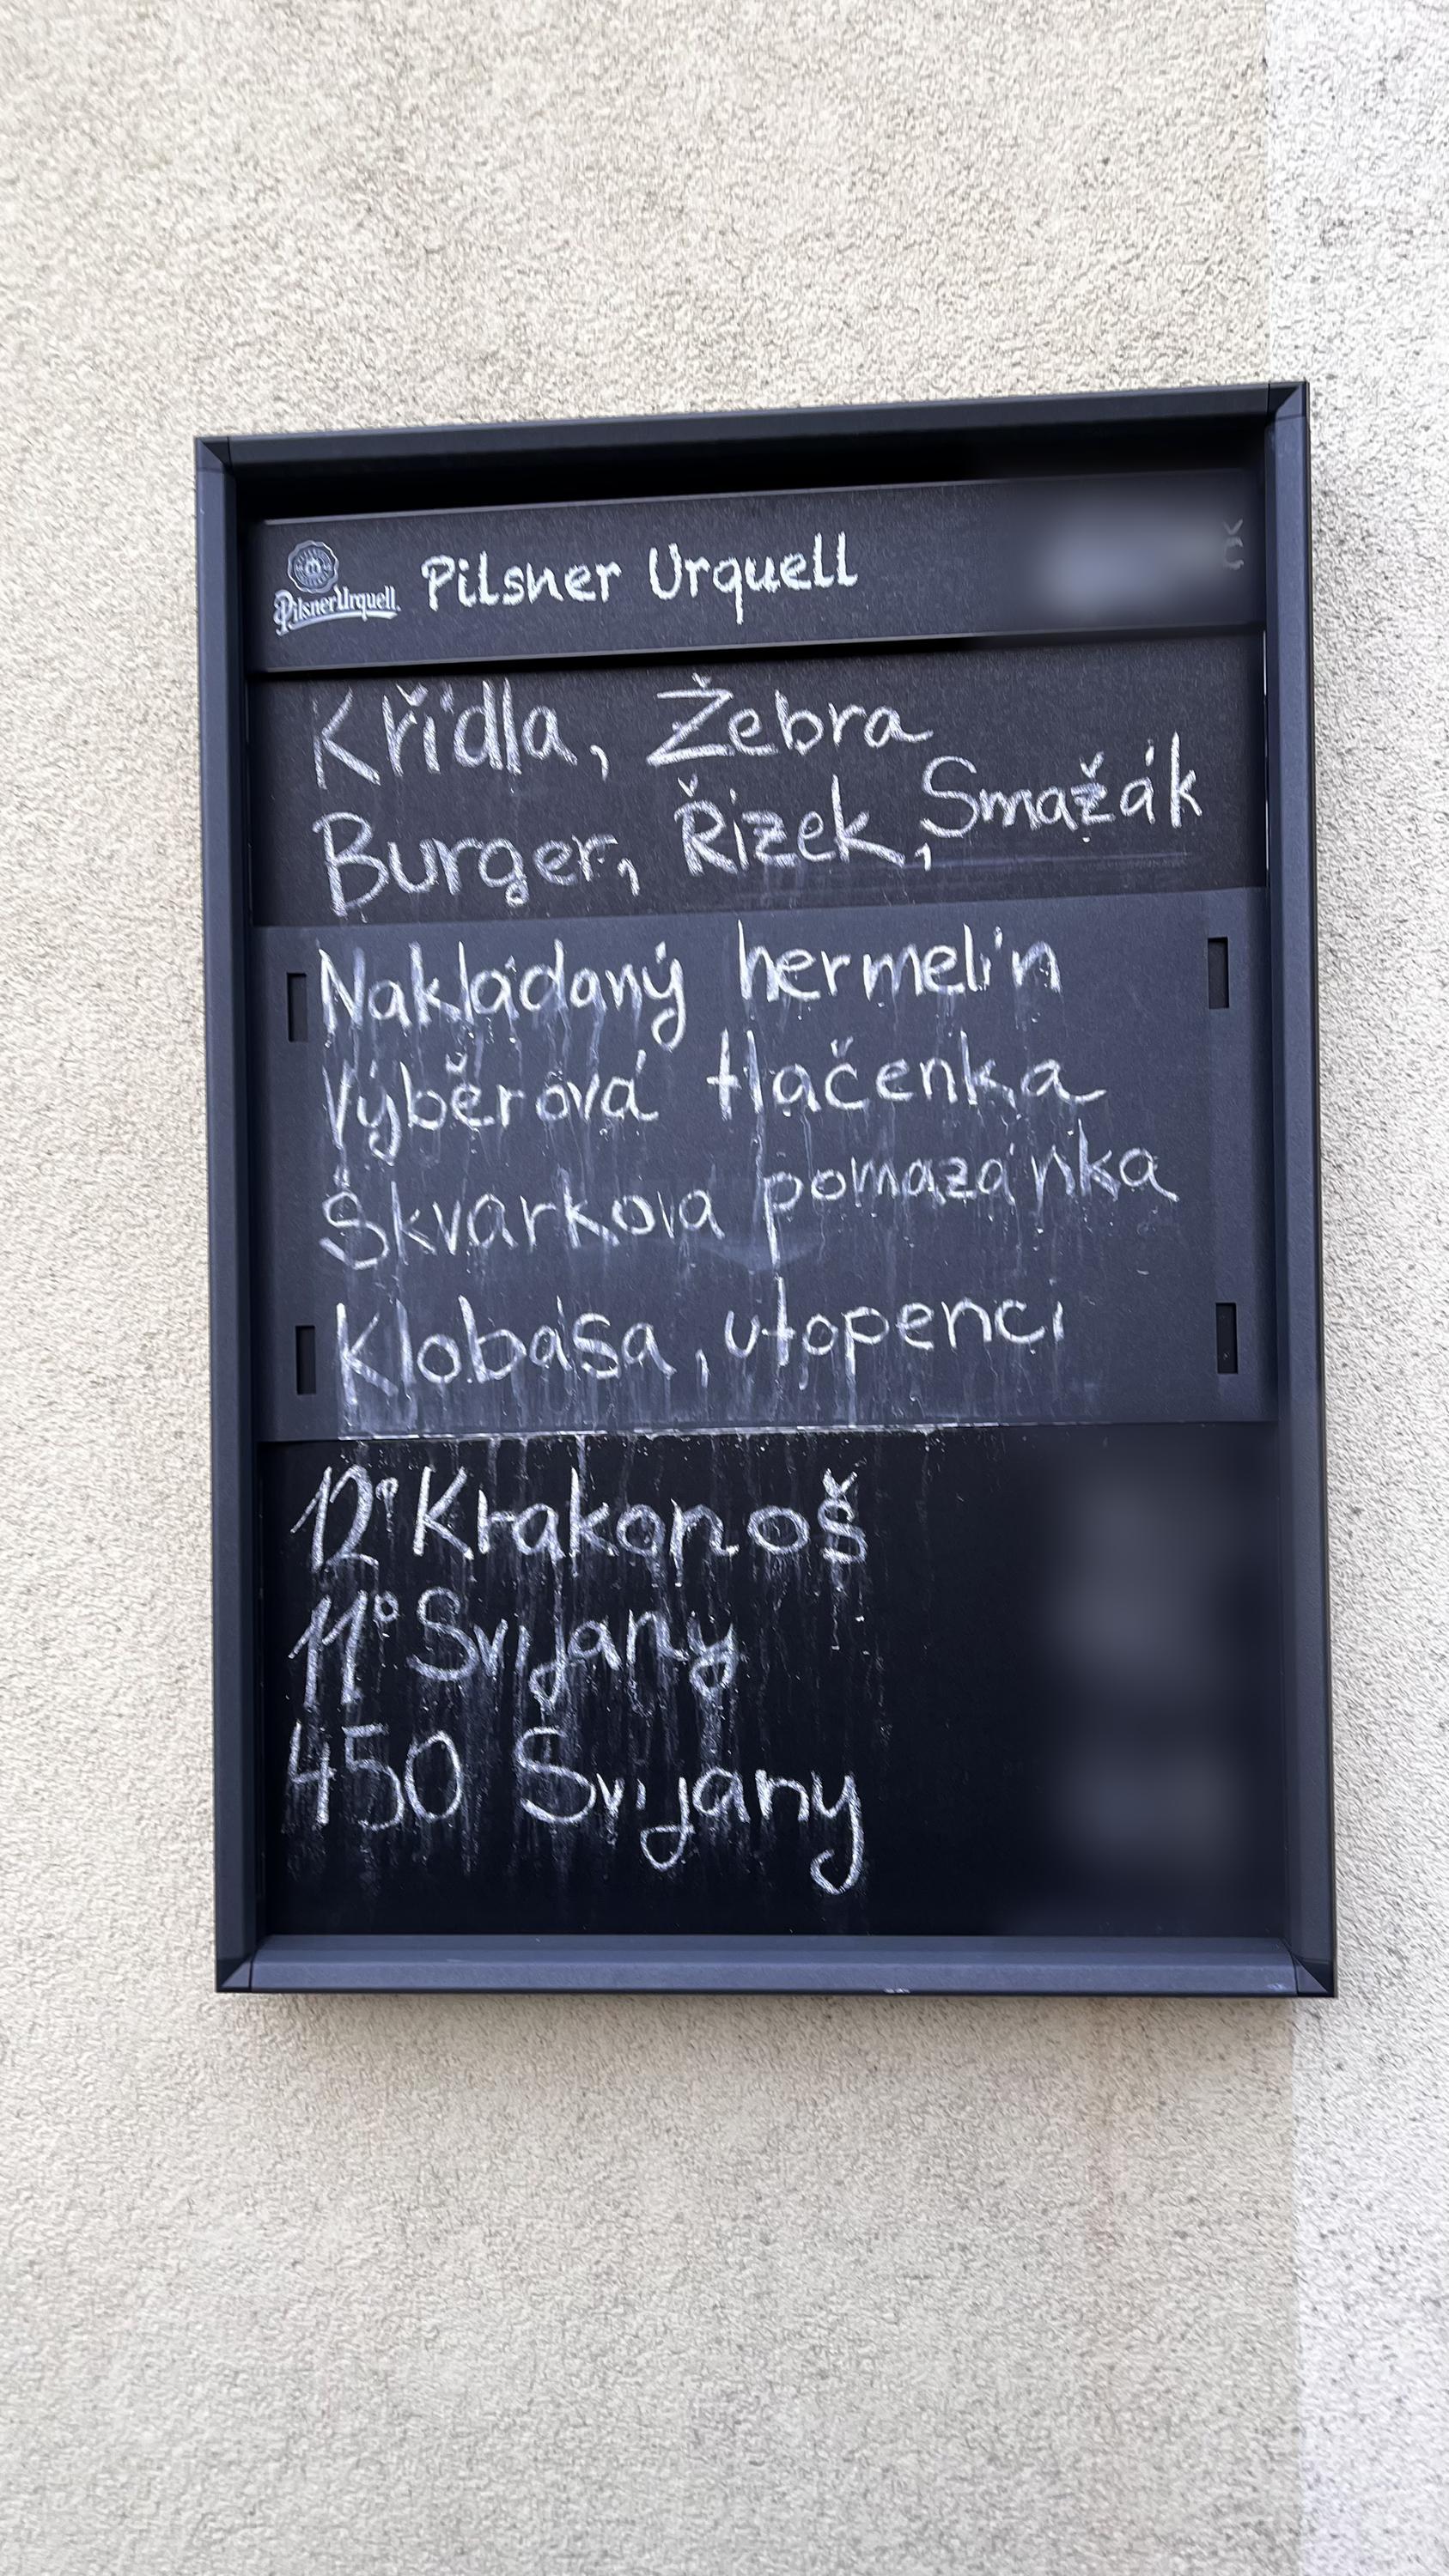 Pilsner Urquell Pilsner Urquell č
Křídla, Žebra
Burger, Řizek, Smažák
Nakládaný hermelín
Výběrová tlačenka
Škvarkova pomazánka
Klobása, utopenci
12° Krakonoš
11° Svijany
450 Svijany